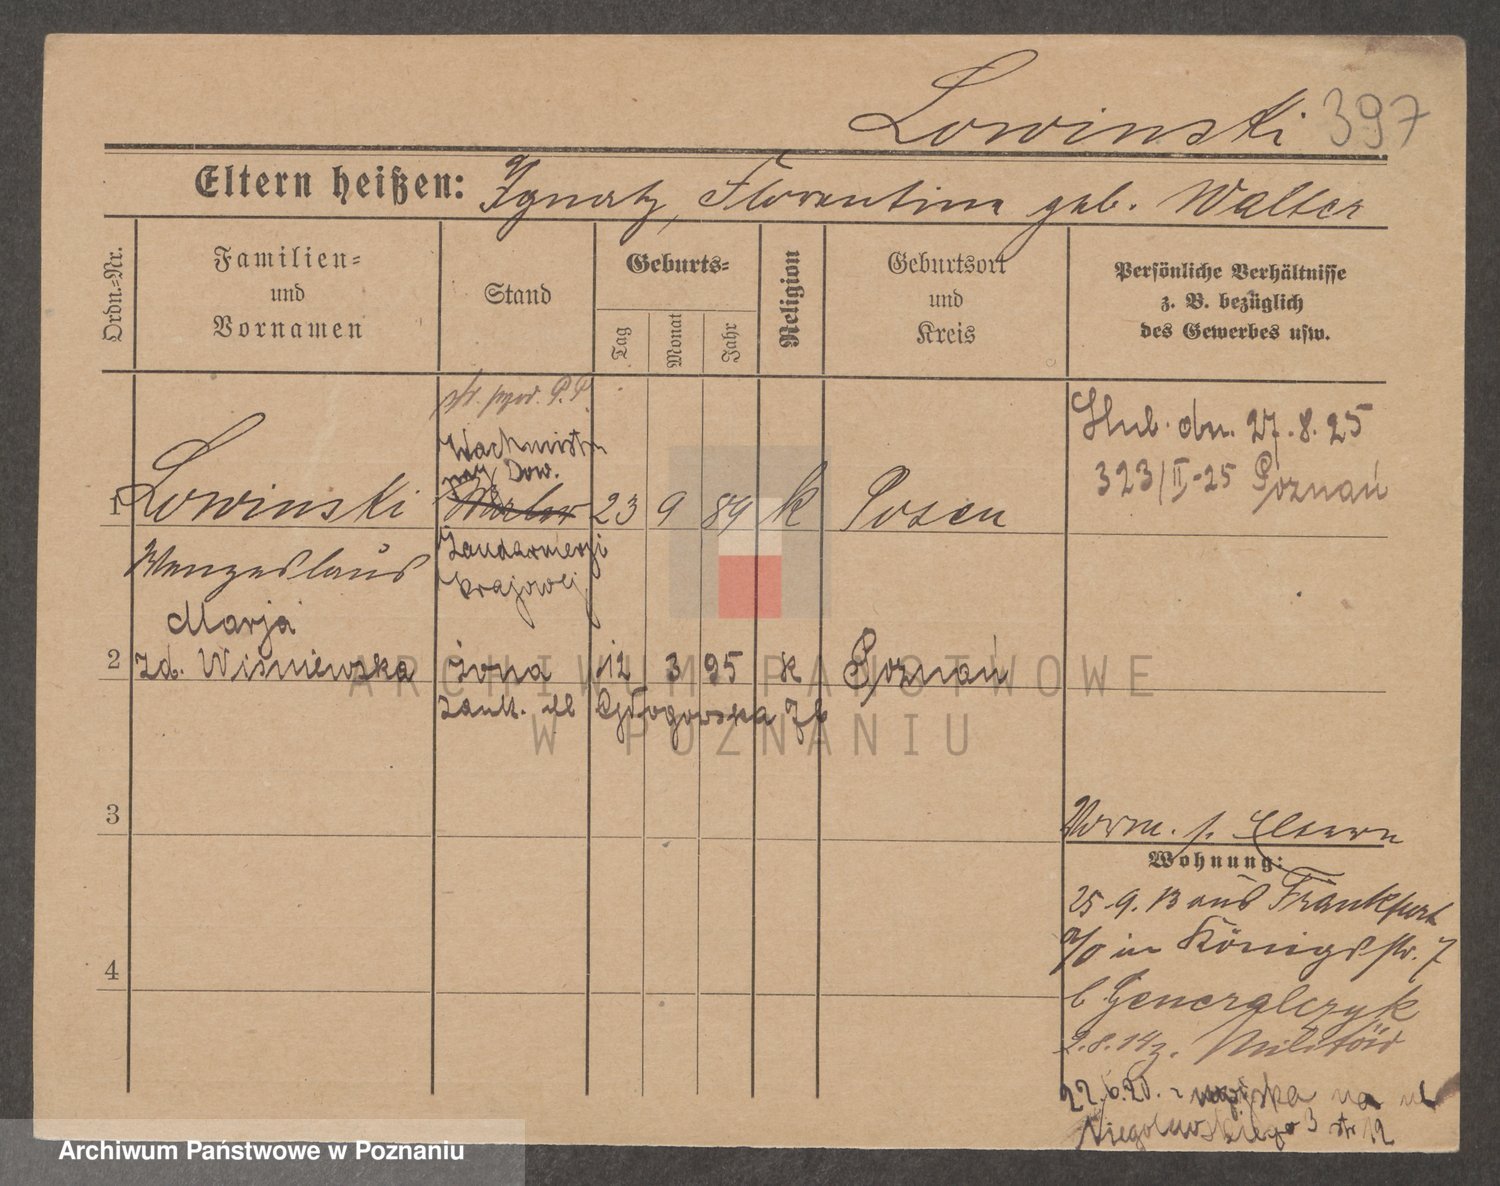 Lowinski 397
Eltern heißen: Ignatz, Florentine geb. Walter
Ordn.-Nr.
Familien-
und
Vornamen
Stand
Geburts-
Tag
Monat
Jahr
Religion
Geburtsort
und
Kreis
Persönliche Verhältnisse
z. B. bezüglich
des Gewerbes usw.
st. przod. P.P.
Wachmistr.
Dow.
1 Lowinski Maler 23 9 89 k Posen
Wenzeslaus
Żandarmerji
krajowej
Ślub. dn. 27.8.25
323/II-25 Poznań
Marja
2 zd. Wiśniewska żona 12 3 95 k Poznań
Głogowska
3
4
Vorm. s. Eltern
Wohnung:
25.9.13 aus Frankfurt
a/O in Königsstr. 7
b Generalczyk
2.8.14 z. Militär
22.6.20. z wojska na ul
Niegolewskiego 3 12
ARCHIWUM PAŃSTWOWE
W POZNANIU
Archiwum Państwowe w Poznaniu